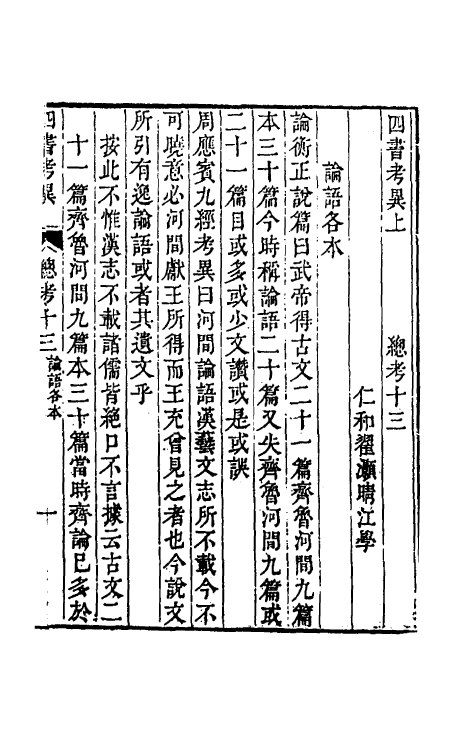 四書考異上　　總考十三
仁和翟灝晴江學
論語各本
論衡正說篇曰武帝得古文二十一篇齊魯河間九篇
本三十篇今時稱論語二十篇又失齊魯河間九篇或
二十一篇目或多或少文讚或是或誤
周應賓九經考異曰河間論語漢藝文志所不載今不
可曉意必河間獻王所得而王充曾見之者也今說文
所引有逸論語或者其遺文乎
按此不惟漢志不載諸儒皆絕口不言據云古文二
十一篇齊魯河間九篇本三十篇當時齊論已多於
四書考異　總考十三　論語各本　十